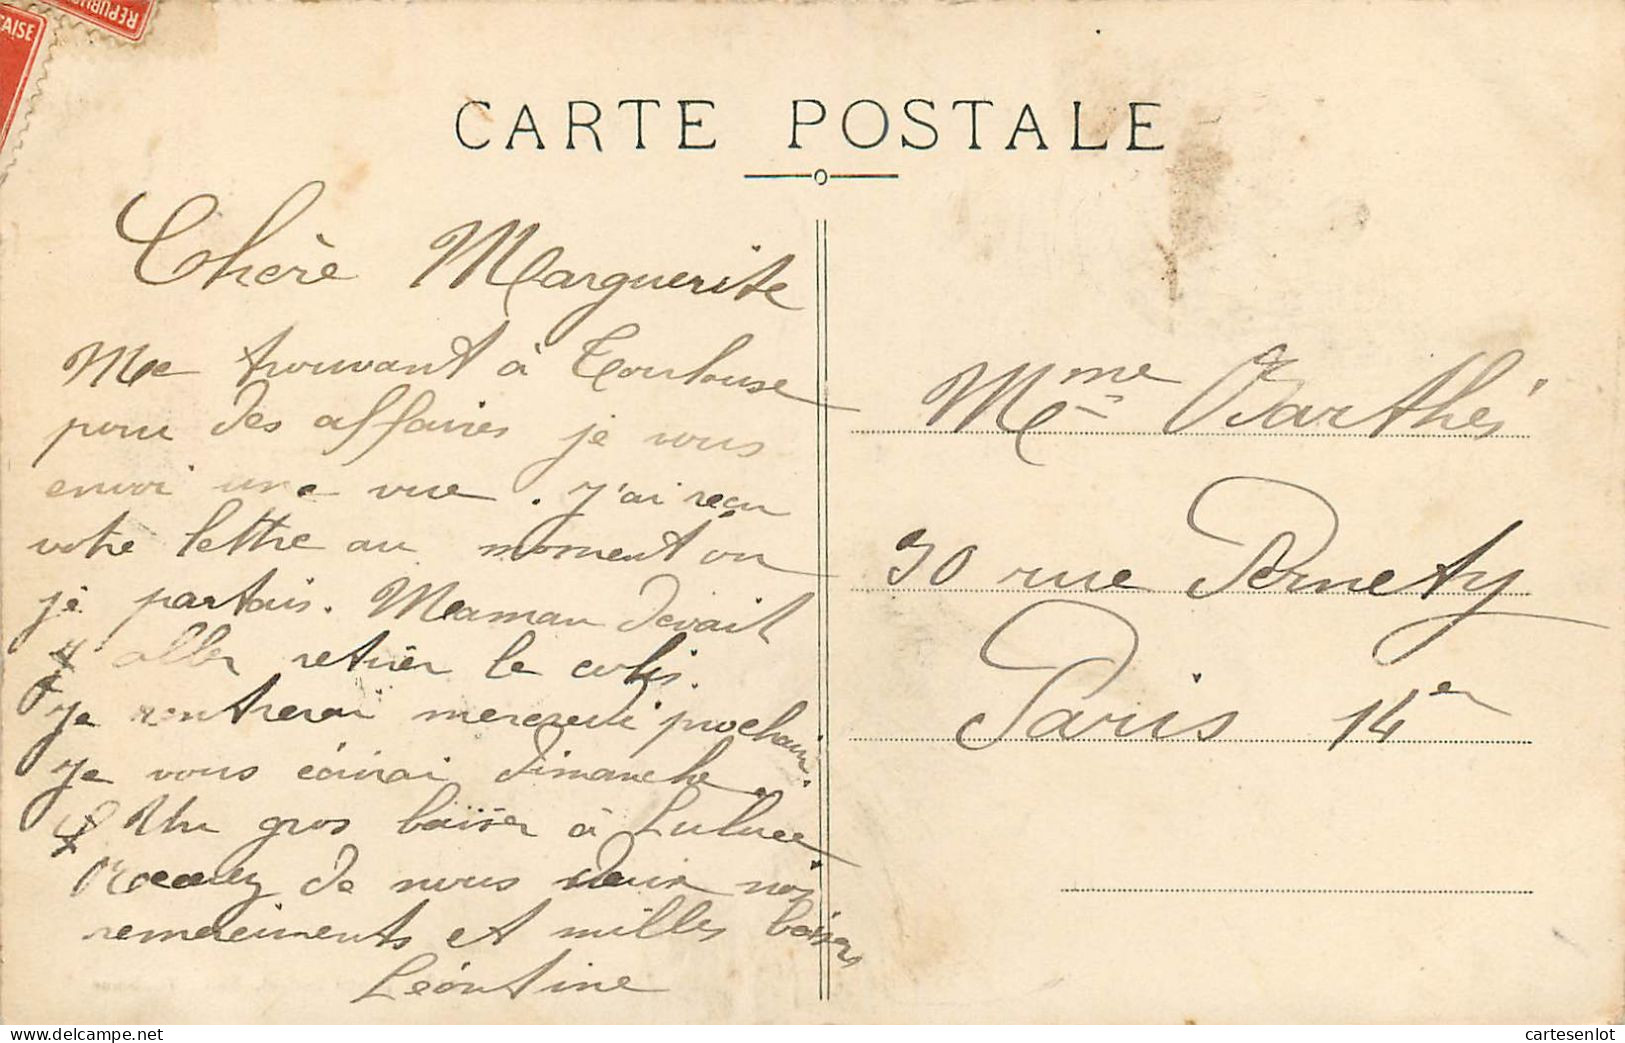 RÉPUBLIQUE
CAISE
CARTE POSTALE
Chère Marguerite
Me trouvant à Toulouse
pour des affaires je vous
envoi une vue. J'ai reçu
votre lettre au moment ou
je partais. Maman devait
aller retirer le colis.
Je rentrerai mercredi prochain.
Je vous écirai dimanche.
Un gros baiser à Lulucee
Recevez de nous deux nos
remerciments et milles baisers
Léontine
Mme Barthés
30 rue Pernety
Paris 14er
www.delcampe.net
cartesenlot